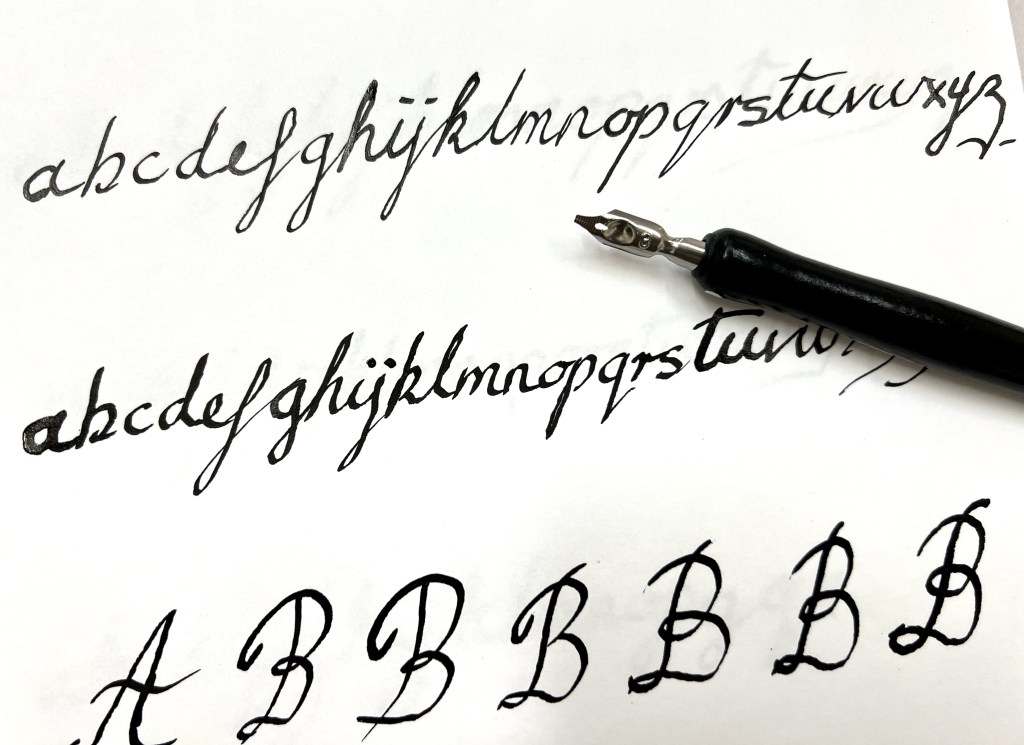 abcdefghijklmnopqrstuvwxyz
abcdefghijklmnopqrstuvw
A B B B B B B